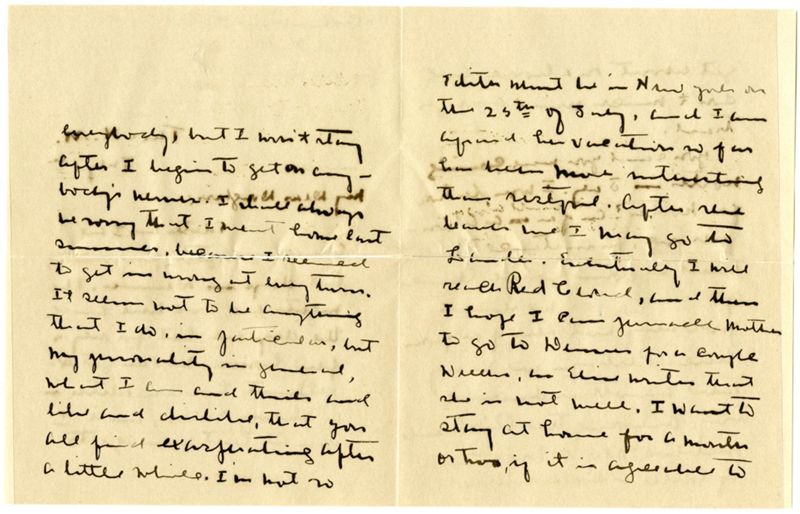 everybody, but I won't stay
after I begin to get on any-
body's nerves. I shall always
be sorry that I went home last
summer, because I seemed
to get in wrong at every turn.
It seems not to be anything
that I do, in particular, but
my personality in general,
what I am and think and
like and dislike, that you
all find exasperating after
a little while. I'm not so
Edith must be in New York on
the 25th of July, and I am
afraid her vacation so far
has been more interesting
than restful. After she
leaves me I may go to
Lander. Eventually I will
reach Red Cloud, and then
I hope I can persuade Mother
to go to Denver for a couple
weeks, as Elsie writes that
she is not well. I want to
stay at home for a month
or two, if it is agreeable to